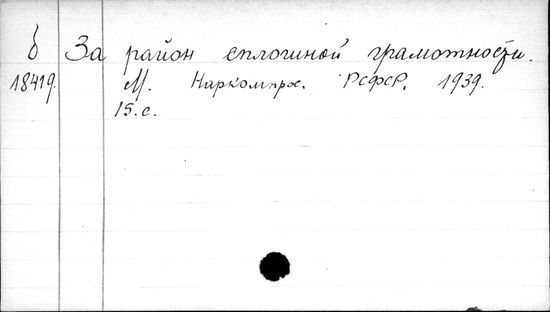 б За район сплошной грамотности.
18419. М. Наркомпрос. РСФСР. 1939.
15. с.